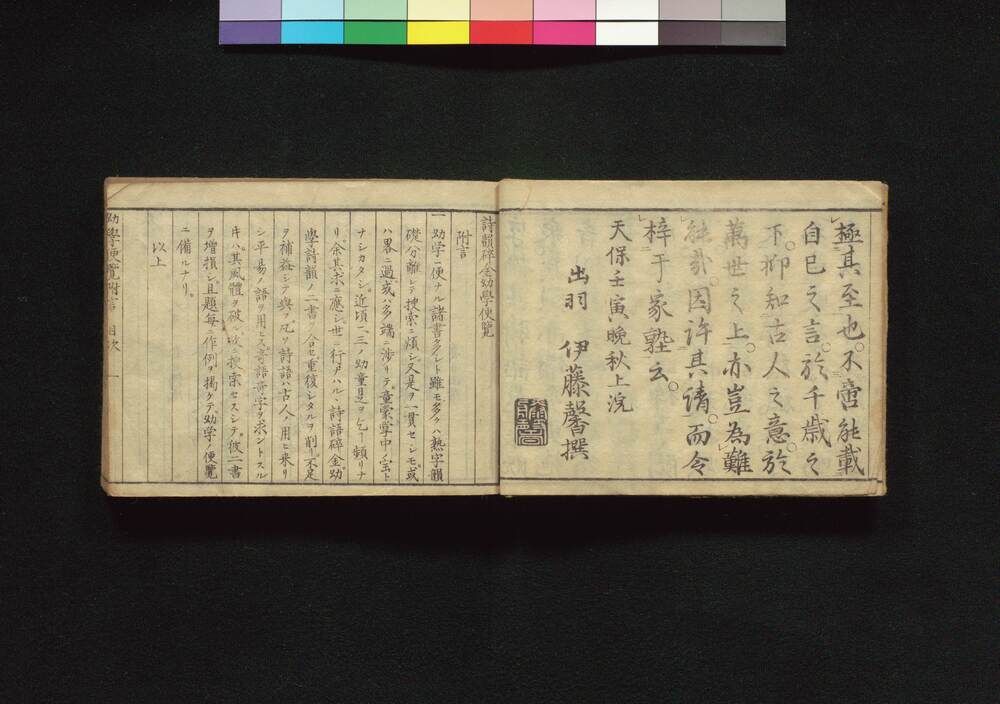 極其至也。不啻能載
自己之言。於千歳之
下。抑知古人之意。於
萬世之上。亦豈為難
能哉。因許其請。而令
梓于家塾云。
天保壬寅晩秋上浣
出羽 伊藤馨撰
詩韻碎金幼學便覧
附言
一 幼学ニ便ナル諸書多シト雖モ多クハ熟字韻
礎分離シテ捜索ニ煩シ又是ヲ一貫セシモ或
ハ畧ニ過或ハ多端ニ渉リテ童蒙掌中ノ宝ト
ナシカタシ近頃二三ノ幼童是ヲ乞フ頻リナ
リ余其求ニ應シ世ニ行ハルヽ詩語碎金幼
學詩韻ノ二書ヲ合セ重復シタルヲ削リ不足
ヲ補益シテ與フ凡ソ詩語ハ古人ノ用ヒ来リ
シ平易ノ語ヲ用ヒス竒語奇字ヲ求ントスル
片ハ其風體ヲ破ル故ニ捜索セスシテ彼二書
ヲ増損シ且題毎ニ作例ヲ掲ケテ幼学ノ便覧
ニ備ルナリ
以上
幼學便覧附言 目次 一